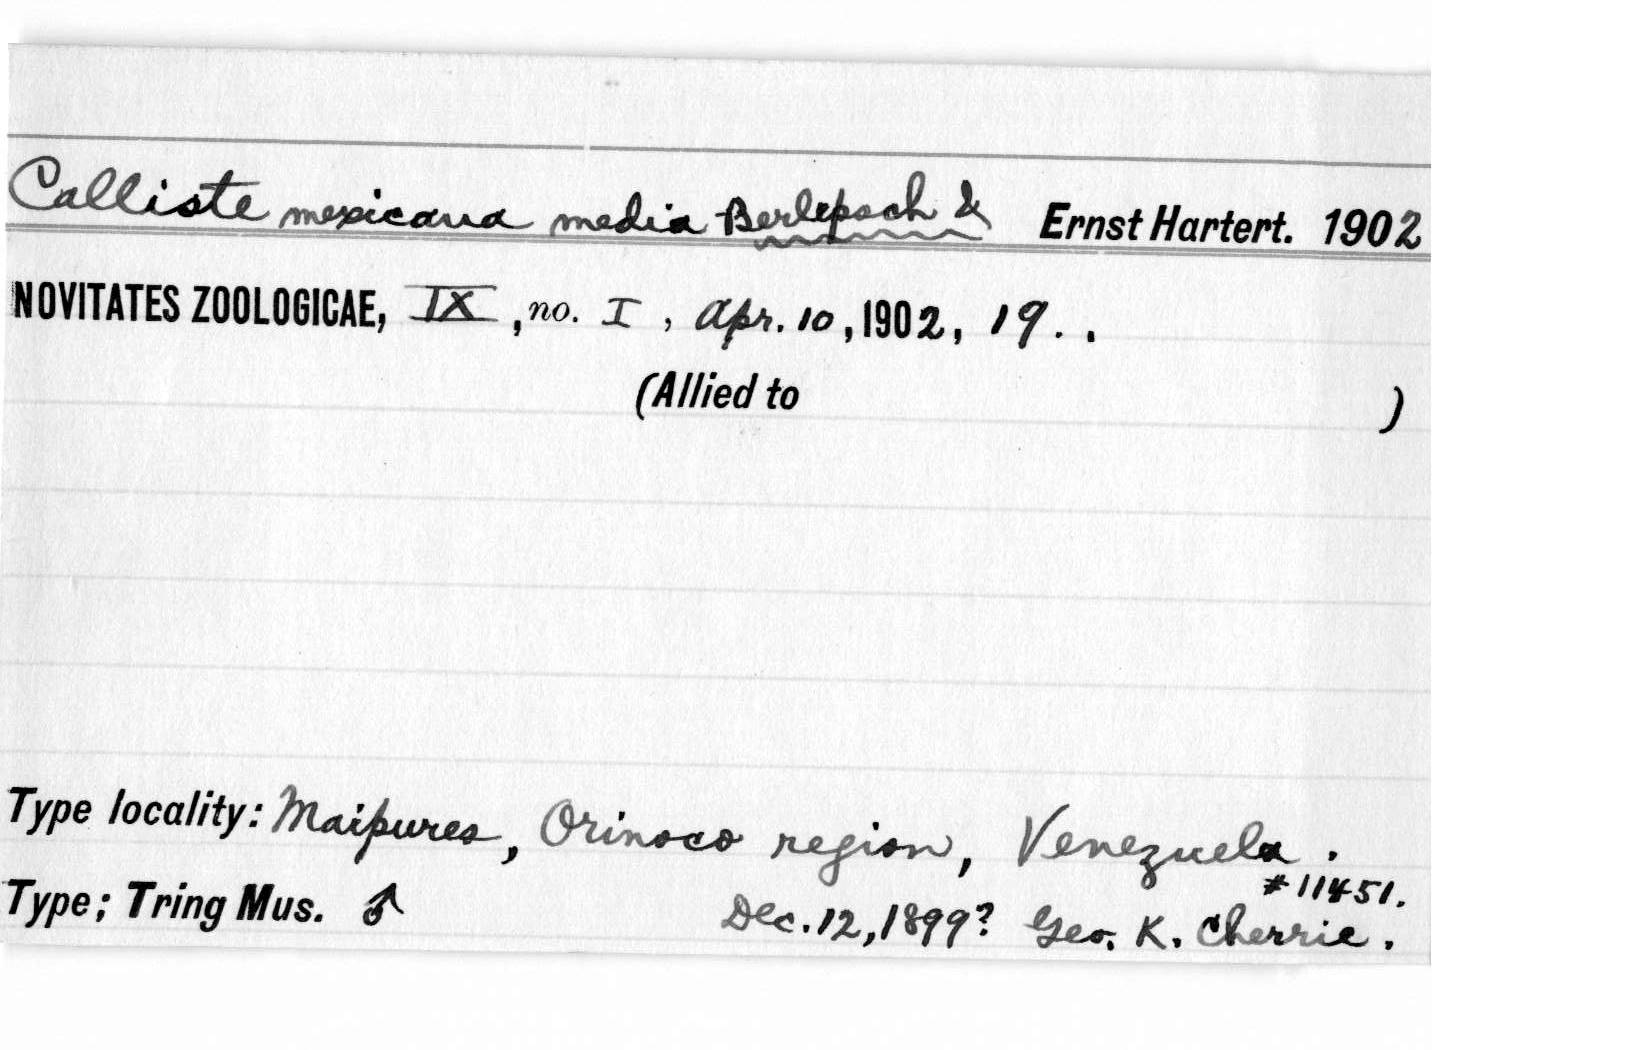 Calliste mexicana media Berlepsch & Ernst Hartert. 1902
NOVITATES ZOOLOGICAE, IX, no. I, Apr. 10, 1902, 19. .
(Allied to )
Type locality: Maipures, Orinoco region, Venezuela.
#11451.
Type; Tring Mus. ♂ Dec. 12, 1899? Geo. K. Cherrie.